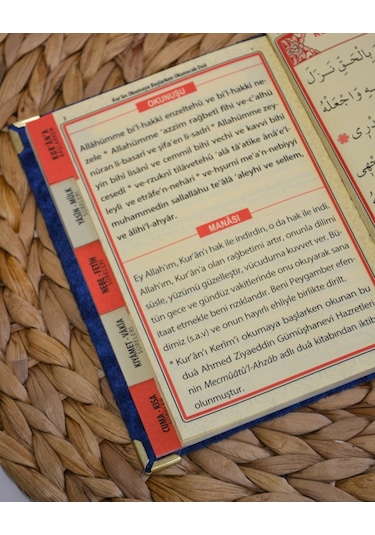 Kur'an Okumaya Başlarken Okunacak Duâ
OKUNUŞU
Allâhümme bi'l-hakkı enzeltehü ve bi'l-hakkı ne-
zele * Allâhümme 'azzım rağbetî fîhi ve-c'alhü
nûran li-basarî ve şifâ'en li-sadrî * Allâhümme zey-
yin bihî lisânî ve cemmil bihî vechî ve kavvi bihî
cesedî * ve-rzuknî tilâvetehû 'alâ tâ'atike ânâ'e'l-
leyli ve etrâfe'n-nehâri * ve-hşurnî me'a'n-nebiyyi
muhammedin sallallâhu te'âlâ 'aleyhi ve sellem,
ve âlihi'l-ahyâr.
MANÂSI
Ey Allah'ım, Kur'ân'ı hak ile indirdin, o da hak ile indi,
Allah'ım, Kur'ân'a olan rağbetimi artır, onunla dilimi
süsle, yüzümü güzelleştir, vücuduma kuvvet ver. Bü-
tün gece ve gündüz vakitlerinde onu okuyarak sana
itaat etmekle beni rızıklandır. Beni Peygamber efen-
dimiz (s.a.v) ve onun hayırlı ehliyle birlikte dirilt.
* Kur'ân'ı Kerim'i okumaya başlarken okunan bu
duâ Ahmed Ziyaeddin Gümüşhanevi Hazretleri
nin Mecmûâtü'l-Ahzâb adlı duâ kitabından iktib
olunmuştur.
KUR'ÂN'A
YASİN - MÜLK
SURELERİ
NEBE - FETİH
SURELERİ
KIYAMET - VAKIA
SURELERİ
CUMA - KISA
SURELER
بِالْحَقِّ نَزَلَ
وَاجْعَلْهُ